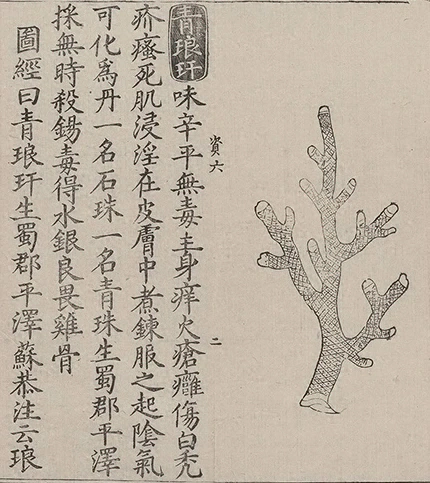 資六
二
青琅玕味辛平無毒主身痒火瘡癰傷白秃
疥瘙死肌浸淫在皮膚中煮鍊服之起陰氣
可化爲丹一名石珠一名青珠生蜀郡平澤
採無時殺錫毒得水銀良畏雞骨
圖經曰青琅玕生蜀郡平澤蘇恭注云琅